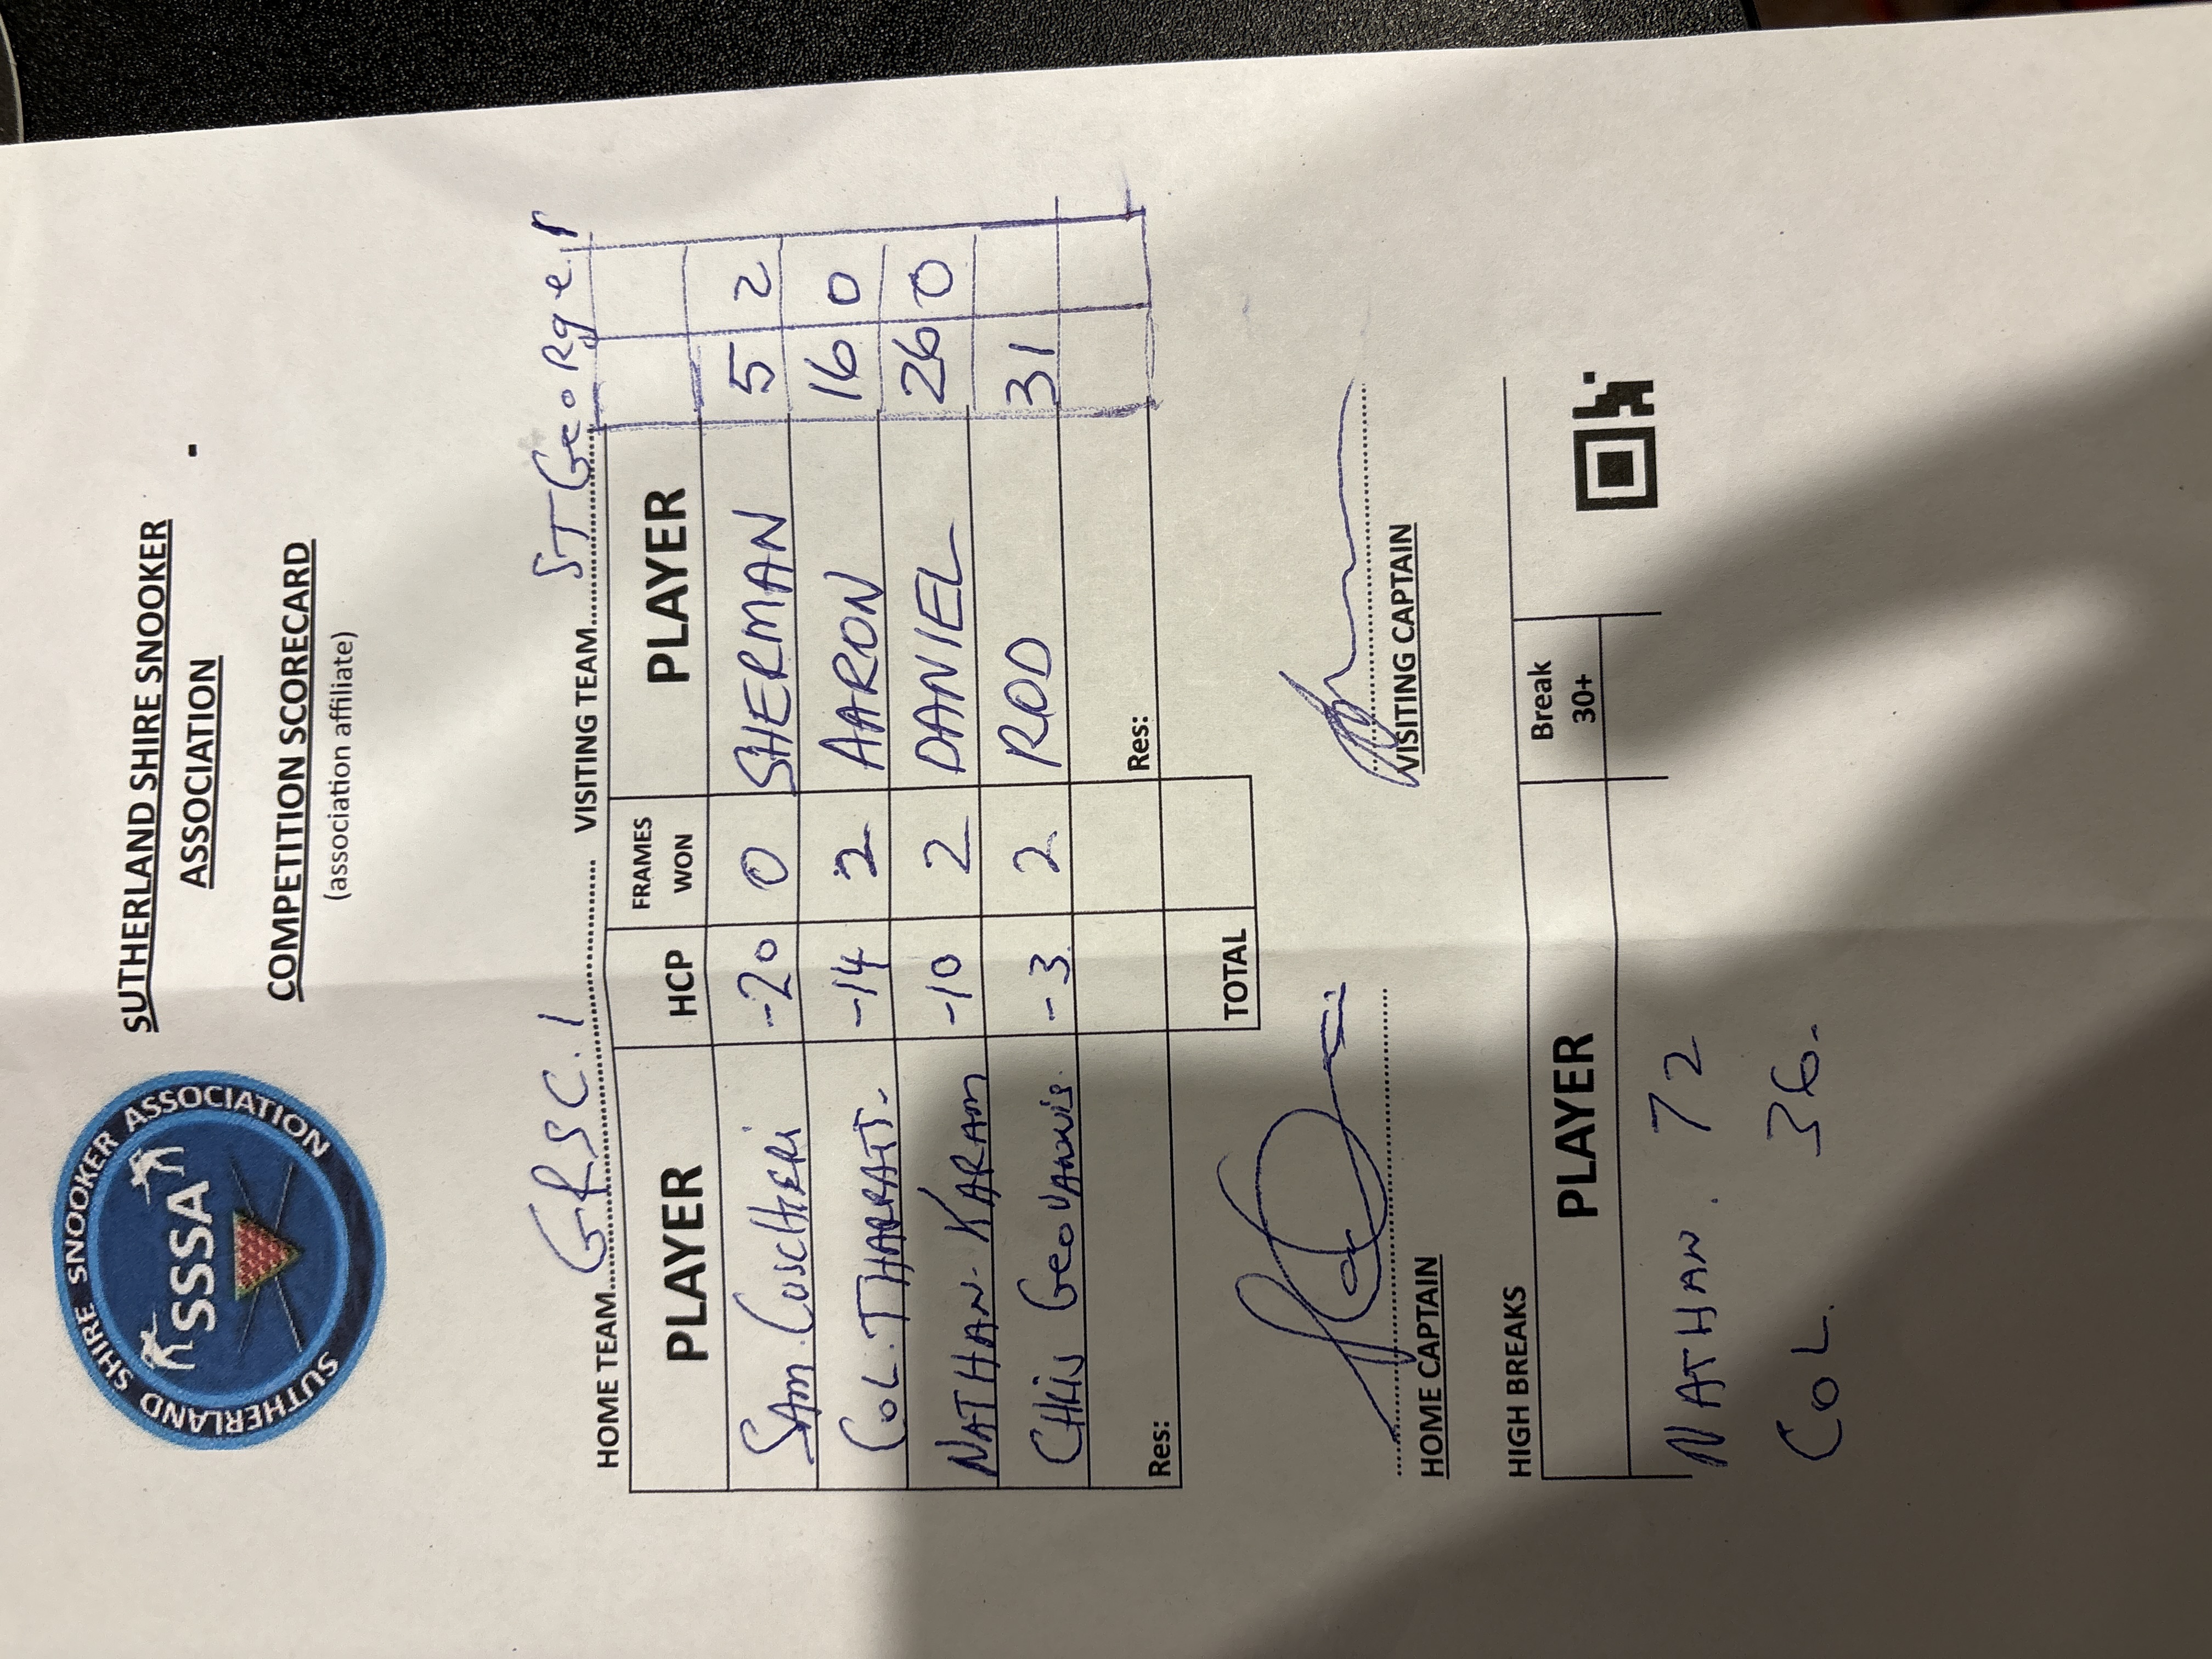 SUTHERLAND SHIRE SNOOKER ASSOCIATION
SSSA
SUTHERLAND SHIRE SNOOKER
ASSOCIATION
COMPETITION SCORECARD
(association affiliate)
HOME TEAM GRSC.1 VISITING TEAM ST GeoRge 1
PLAYER HCP FRAMES WON PLAYER
SAM. CUSCHERI -20 0 SHERMAN 5 2
COL. THARRATT. -14 2 AARON 16 0
NATHAN. KARAM -10 2 DANIEL 26 0
CHRIS GEOVANNIS. -3 2 ROD 31
Res: Res:
TOTAL
HOME CAPTAIN VISITING CAPTAIN
HIGH BREAKS
PLAYER Break 30+
NATHAN. 72
COL. 36.